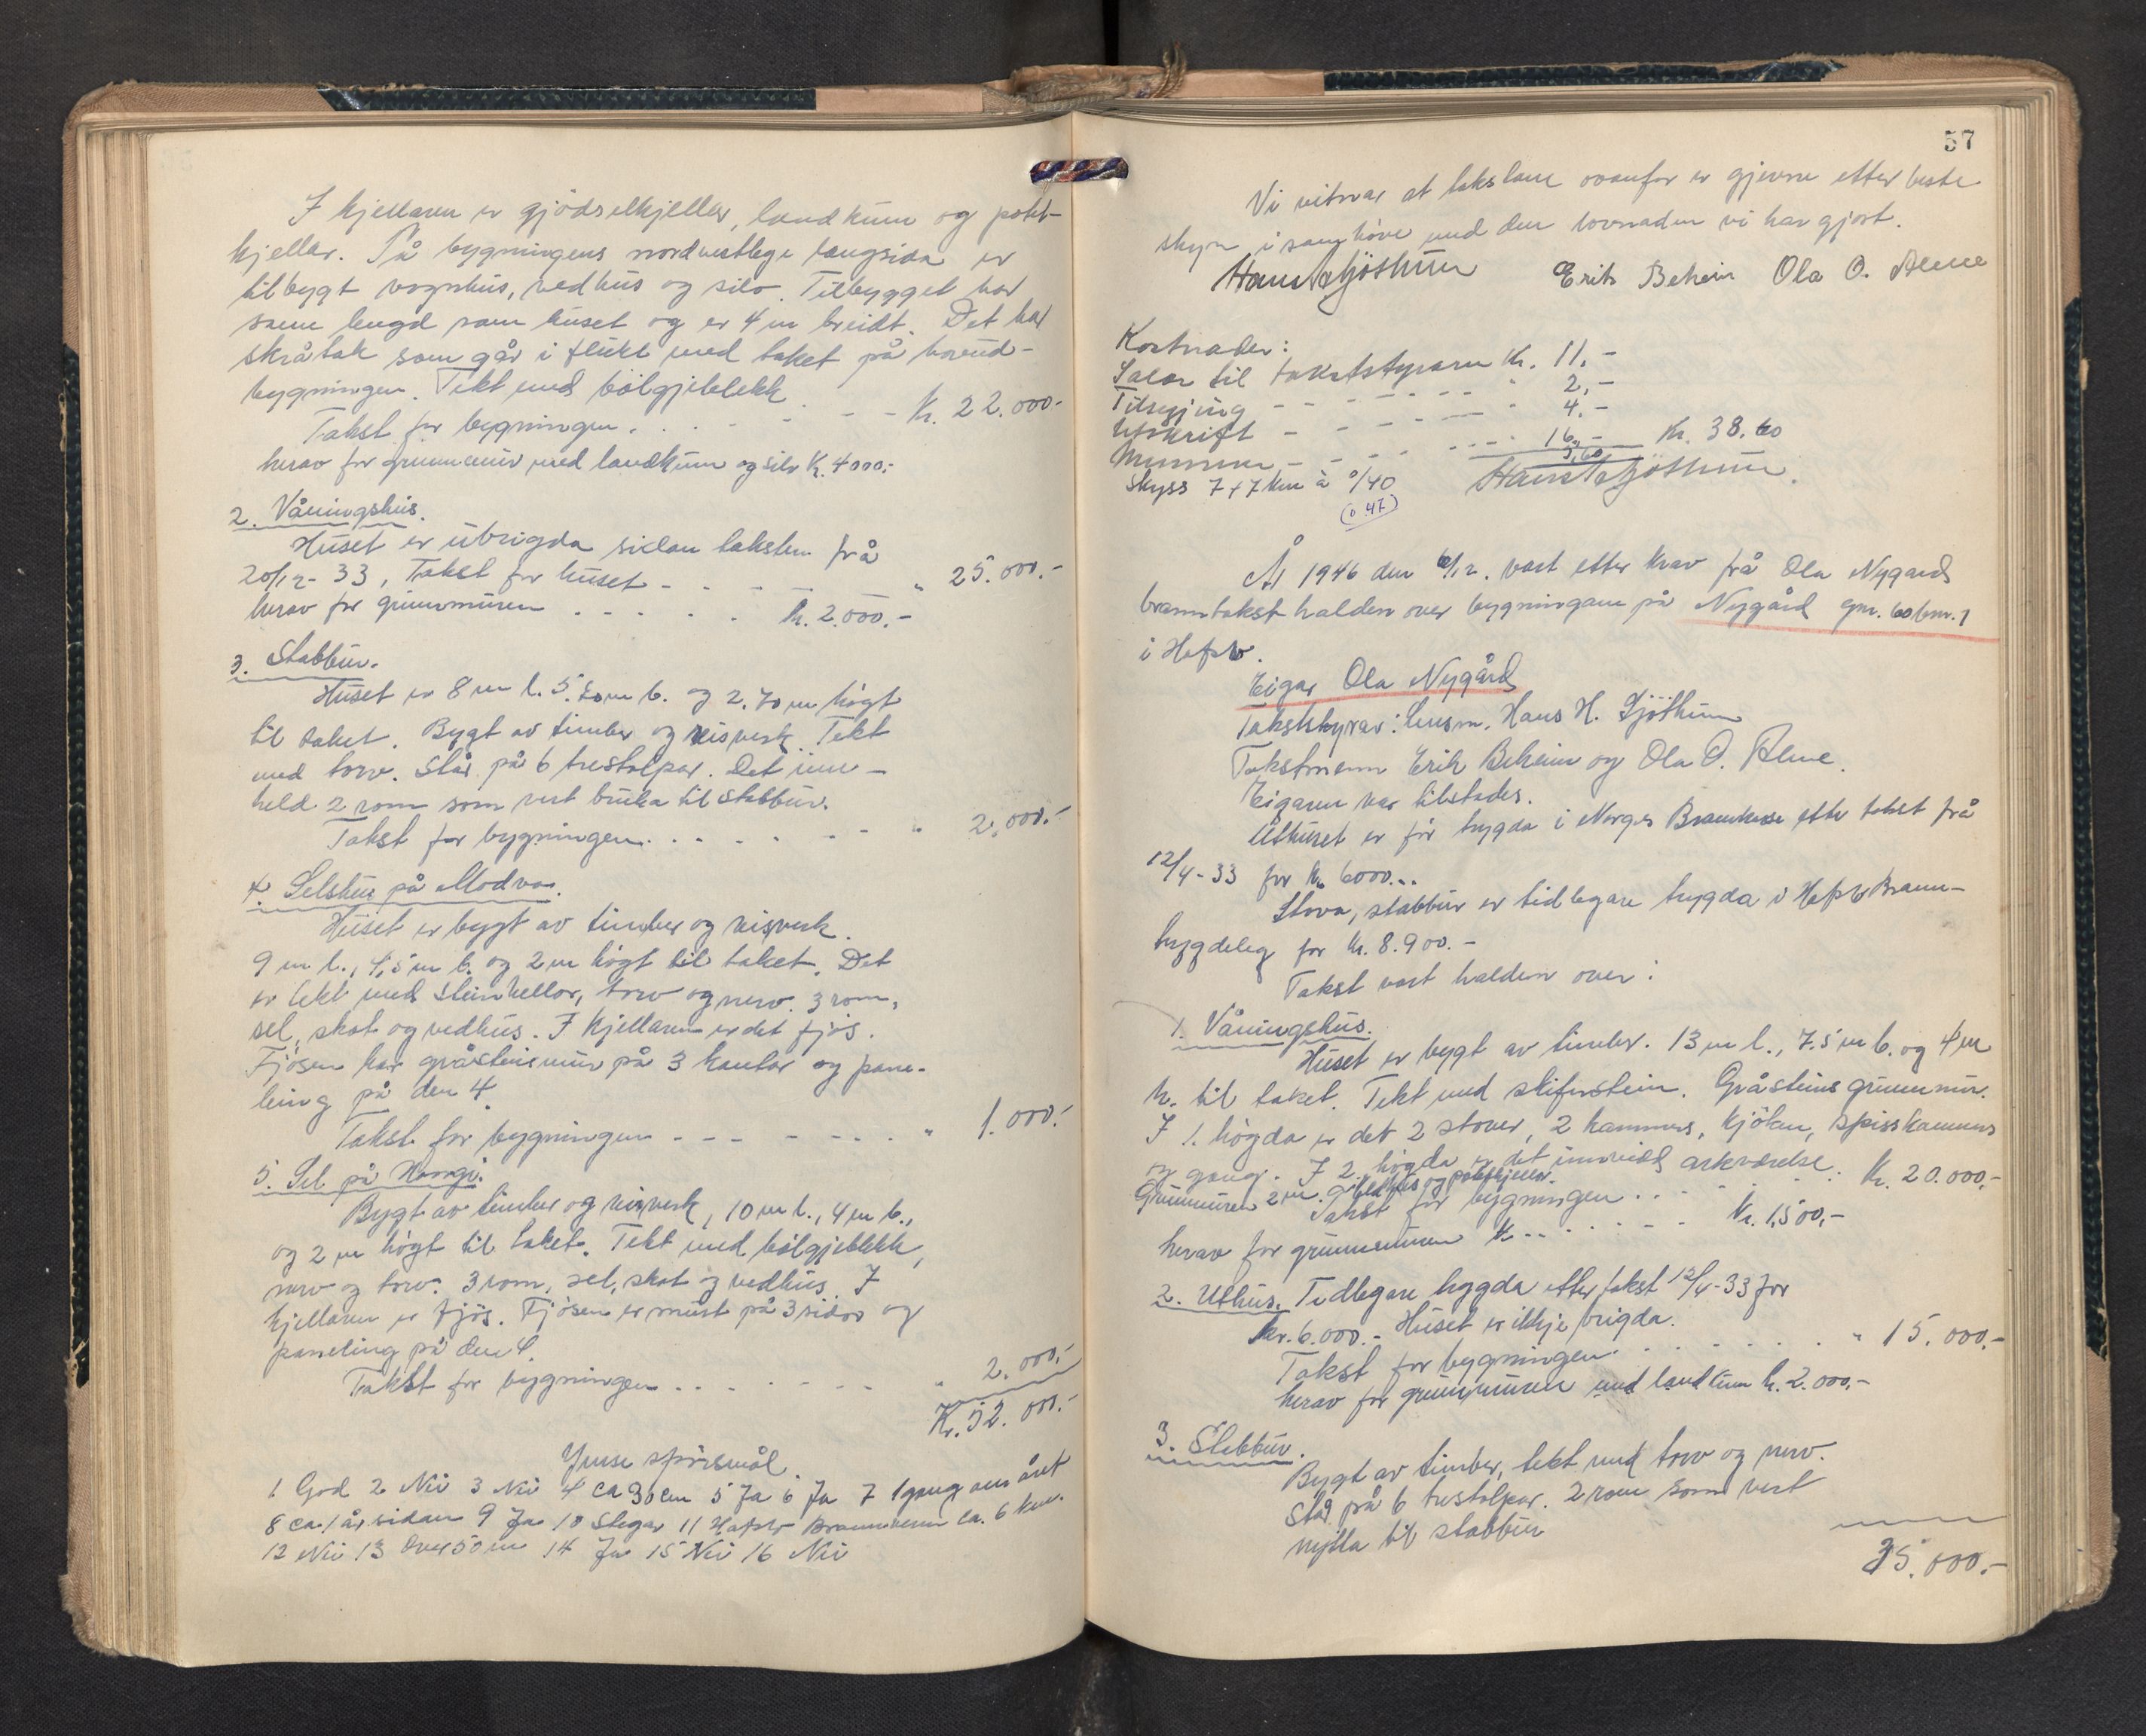 I kjellaren er gjödselkjellar, landkum og potet-
kjellar. På bygningens nordvestlege langsida er
tilbygt vognhus, vedhus og silo. Tilbygget har
same lengd som huset og er 4 m breidt. Det har
skråtak som går i flukt med taket på hovud-
bygningen. Tekt med bölgjeblekk
Takst for bygningen. . . . - - - Kr. 22.000.-
herav for grunnmur med landkum og silo Kr. 4000.-
2. Våningshus.
Huset er ubrigda sidan taksten frå
20/12-33, Takst for huset - - - - - " 25.000.-
herav for grunnmuren . . . . . Kr. 2.000.-
3. Stabbur.
Huset er 8 m l. 5.50 m b. og 2.70 m högt
til taket. Bygt av timber og reisverk. Tekt
med torv. Står på 6 trestolpar. Det inne-
held 2 rom som vert bruka til stabbur.
Takst for bygningen. . . . - - - " 2.000.-
4. Selshus på Modvo.
Huset er bygt av timber og reisverk.
9 m l., 4,5 m b. og 2 m högt til taket. Det
er tekt med steinhellor, torv og nevr. 3 rom,
sel, skot og vedhus. I kjellaren er det fjös.
Fjösen har gråsteinsmur på 3 kantar og pane-
leing på den 4.
Takst for bygningen - - - - - - . " 1.000.-
5. Sel på Haugi.
Bygt av timber og reisverk, 10 m l., 4 m b.,
og 2 m högt til taket. Tekt med bölgjeblekk,
nevr og torv. 3 rom, sel, skot og vedhus. I
kjellaren er fjös. Fjösen er murt på 3 sidor og
paneling på den 4.
Takst for bygningen . . . . - - - " 2.000.-
Kr. 52.000.-
Ymse spörsmål
1 God 2 Nei 3 Nei 4 ca 30 cm 5 Ja 6 Ja 7 1 gang om året
8 ca. 1 år sidan 9 Ja 10 Stegar 11 Hafslo Brannvern ca. 6 km.
12 Nei 13 Over 50 m 14 Ja 15 Nei 16 Nei
57
Vi vitnar at takstane ovanfor er gjevne etter beste
skyn i samhöve med den lovnaden vi har gjort.
Hans H Sjöthun Erik Beheim Ola O. Alme
Kostnader:
Salær til takststyraren Kr. 11.-
Tilsegjing - - - - - - - " 2,-
Utskrift - - - - - - " 4.-
Mennene - - - - - - - - " 16,- Kr. 38.60
Skyss 7+7 km à 0/40 5,60 Hans H Sjöthun.
(0.47)
År 1946 den 6/12. vart etter krav frå Ola Nygard
branntakst halden over bygningane på Nygård gnr. 60 bnr. 1
i Hafslo.
Eigar Ola Nygård
Takststyrar: Lensm. Hans H. Sjöthun
Takstmenn Erik Beheim og Ola O. Alme.
Eigaren var tilstades.
Uthuset er för trygda i Norges Brannkasse etter takst frå
12/4-33 for kr. 6000.-.
Stova, stabbur er tidlegare trygda i Hafslo Brann-
trygdelag for Kr. 8.900.-
Takst vart halden over:
1. Våningshus.
Huset er bygt av timber. 13 m l., 7.5 m b. og 4 m
h. til taket. Tekt med skiferstein. Gråsteins grunnmur.
I 1. högda er det 2 stover, 2 kammers, kjöken, spisskammers
og gang. I 2. högda er det innreidd arkværelse.
Grunnmuren 2 m. Vedhus og potetkjellar.
Takst for bygningen . . . . . . Kr. 20.000,-
herav for grunnmuren Kr. . . . . - - - Kr. 1,500,-
2. Uthus. Tidlegare trygda etter takst 12/4-33 for
kr. 6.000.- Huset er ikkje brigda.
Takst for bygningen. . . . . . . . " 15.000,-
herav for grunnmuren med landkum kr. 2.000,-
3. Stabbur.
Bygt av timber, tekt med torv og nevr.
Står på 6 trestolpar. 2 rom som vert
nytta til stabbur
35.000,-